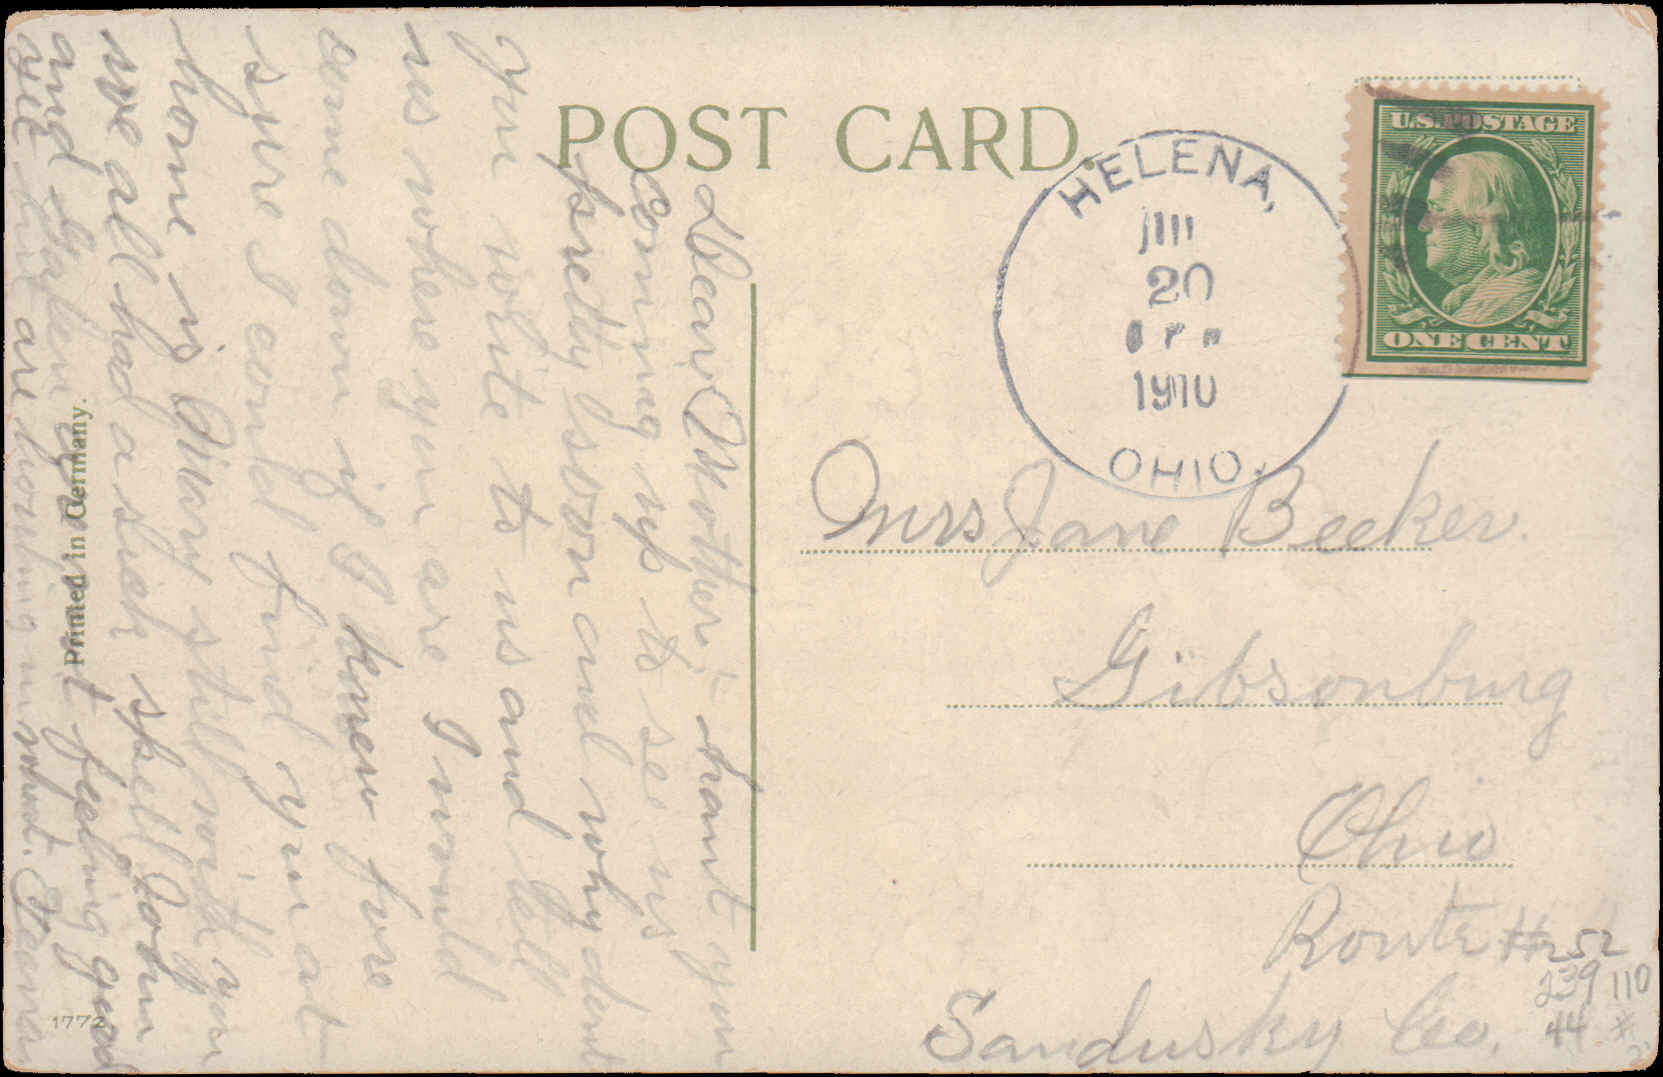 POST CARD.
U.S. POSTAGE
ONE CENT
HELENA,
20
1910
OHIO.
Mrs Jane Beeker.
Gibsonburg
Ohio
Route #2
Sandusky Co.
52
239 110
44
Dear Mother,- haint you
coming up to se us
pretty soon and why dont
you write to us and tell
us where you are I would
come down if I knew fore
sure I could find you at
home is Mary still with you
we all had a sick spell John
and aint feeling good
yet but are
Printed in Germany.
1772